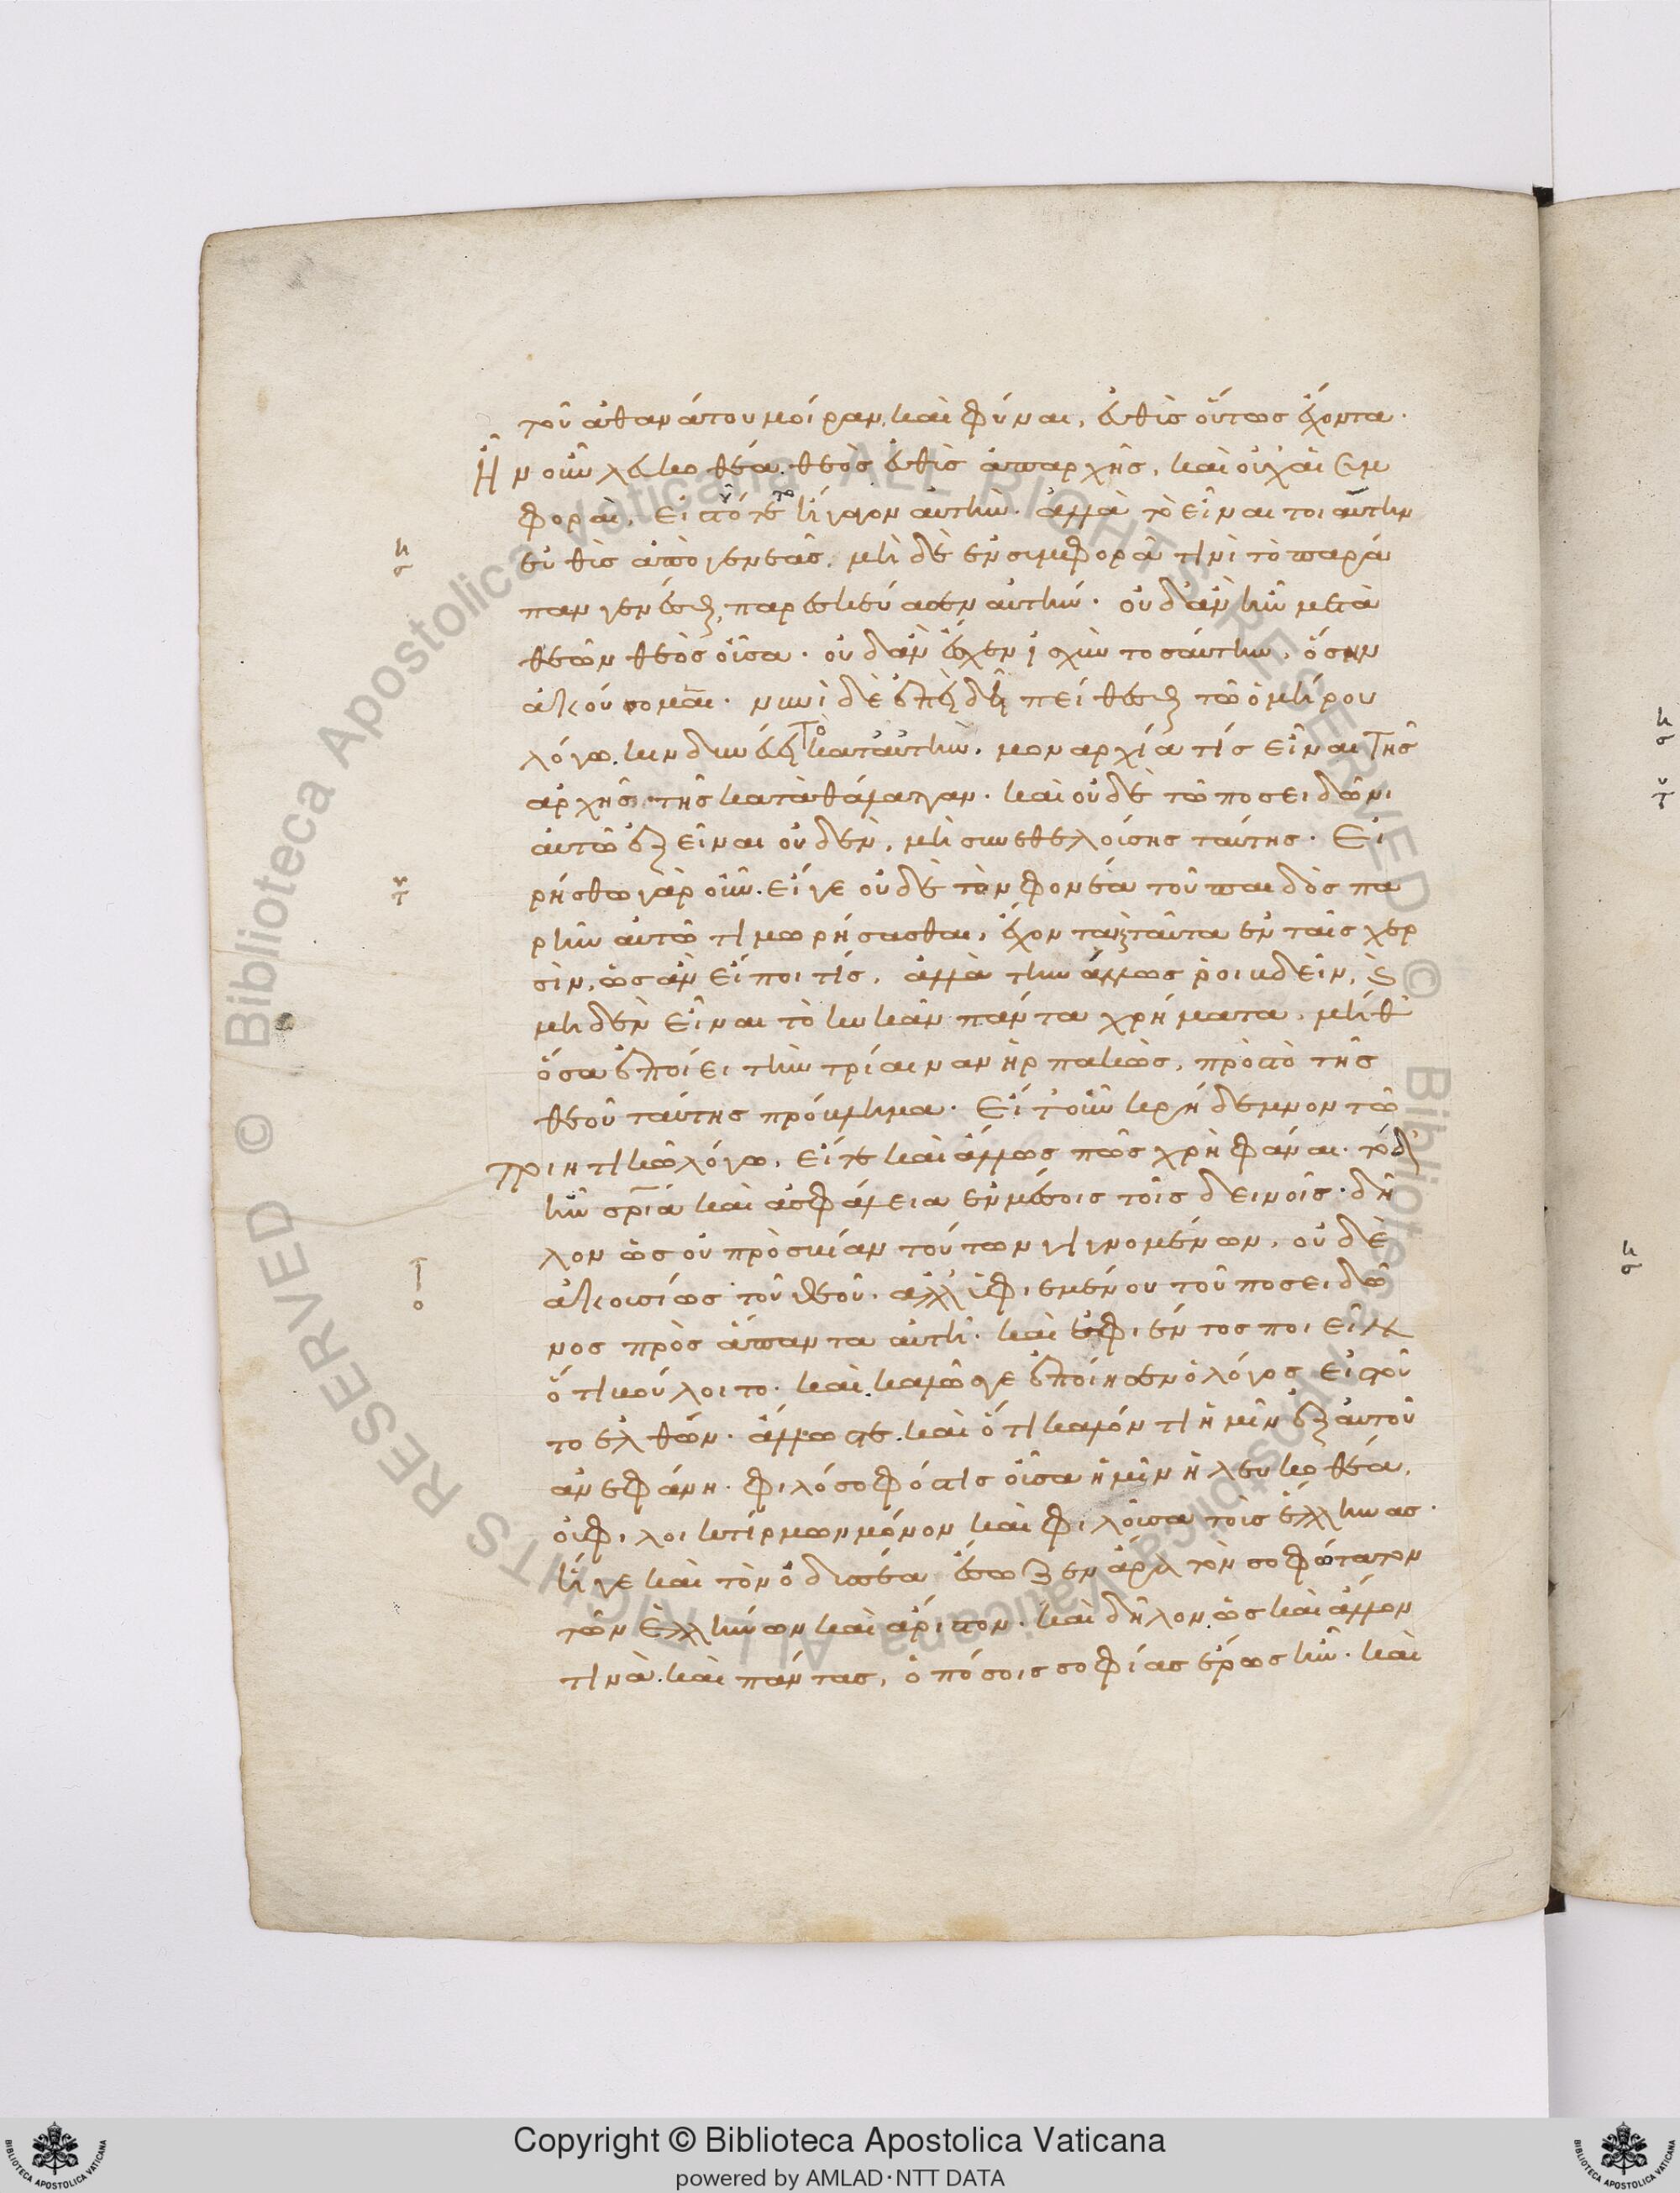 τοῦ ἀθανάτου μοίραν. καὶ φῦναι, εὐθὺς οὕτως ἔχοντα.
Ἦν οὖν λευκοθέα. θεὸς εὐθὺς ἀπαρχῆς, καὶ οὐχ αἱ συμ
φοραὶ, εἰς τοῦτο ἤγαγον αὐτὴν. ἀλλὰ τὸ εἶναι τοιαύτην
εὐθὺς ἀπὸ γενεᾶς, μὴ δὲ ἐν συμφορᾷ τινὶ τὸ παρά
παν γενέσθαι, παρεσκεύασεν αὐτήν. οὐδ' ἂν ἦν μετὰ
θεῶν θεὸς οὖσα. οὐδ' ἂν ἔσχεν ἰσχὺν τοσαύτην, ὅσην
ἀκούομεν. νυνὶ δὲ ἐπειδὴ πείθεσθαι τῷ ὁμήρου
λόγῳ. κινδυνεύει τὸ κατ' αὐτὴν. μοναρχία τίς εἶναι τῆς
ἀρχῆς τῆς κατὰ θάλατταν. καὶ οὐδὲ τῷ ποσειδῶνι
αὐτῷ ἐξεῖναι οὐδὲν, μὴ συνεθελούσης ταύτης. Εἰ
ρήσθω γὰρ οὖν. εἴγε οὐδὲ τὸν φονέα τοῦ παιδὸς πα
ρῆν αὐτῷ τιμωρήσασθαι, ἔχοντα καὶ ταῦτα ἐν ταῖς χερ
σὶν, ὡς ἂν εἴποι τίς. ἀλλὰ τὴν ἄλλως ῥοιζδεῖν,
μηδὲν εἶναι τὸ κυκᾶν πάντα χρήματα. μήθ'
ὅσα ἐποίει τὴν τρίαιναν ἡρπακὼς, πρὸς τὸ τῆς
θεοῦ ταύτης πρόβλημα. Εἴτ' οὖν κρήδεμνον τῷ
ποιητικῷ λόγῳ, εἴτε καὶ ἄλλως πῶς χρὴ φάναι. τόδ'
ἦν σωτηρία καὶ ἀσφάλεια ἐν μέσοις τοῖς δεινοῖς. δῆ
λον ὡς οὐ πρὸς βίαν τούτων γιγνομένων, οὐδὲ
ἀκουσίως τοῦ θεοῦ. ἀλλ' ὑφιεμένου τοῦ ποσειδῶ
νος πρὸς ἅπαντα αὐτῇ. καὶ ἐφιέντος ποιεῖν
ὅ τι βούλοιτο. καὶ καλῶς γε ἐποίησεν ὁ λόγος εἰς τοῦ
το ἐλθὼν. ἄλλως τε. καὶ ὅτι καλόν τι ἡμῖν ἐξ αὐτοῦ
ἀνεφάνη. φιλόσοφός τις οὖσα ἡμῖν ἡ λευκοθέα,
οὐ φιλοικτίρμων μόνον καὶ φιλοῦσα τοὺς ἕλληνας.
ἥ γε καὶ τὸν ὀδυσσέα ἔσωζεν ἄρα τὸν σοφώτατον
τῶν ἑλλήνων καὶ ἄριστον. καὶ δῆλον. ὡς καὶ ἄλλον
τινὰ. καὶ πάντας, ὁπόσοις σοφίας ἔρως ἦν. καὶ
Copyright © Biblioteca Apostolica Vaticana
powered by AMLAD·NTT DATA